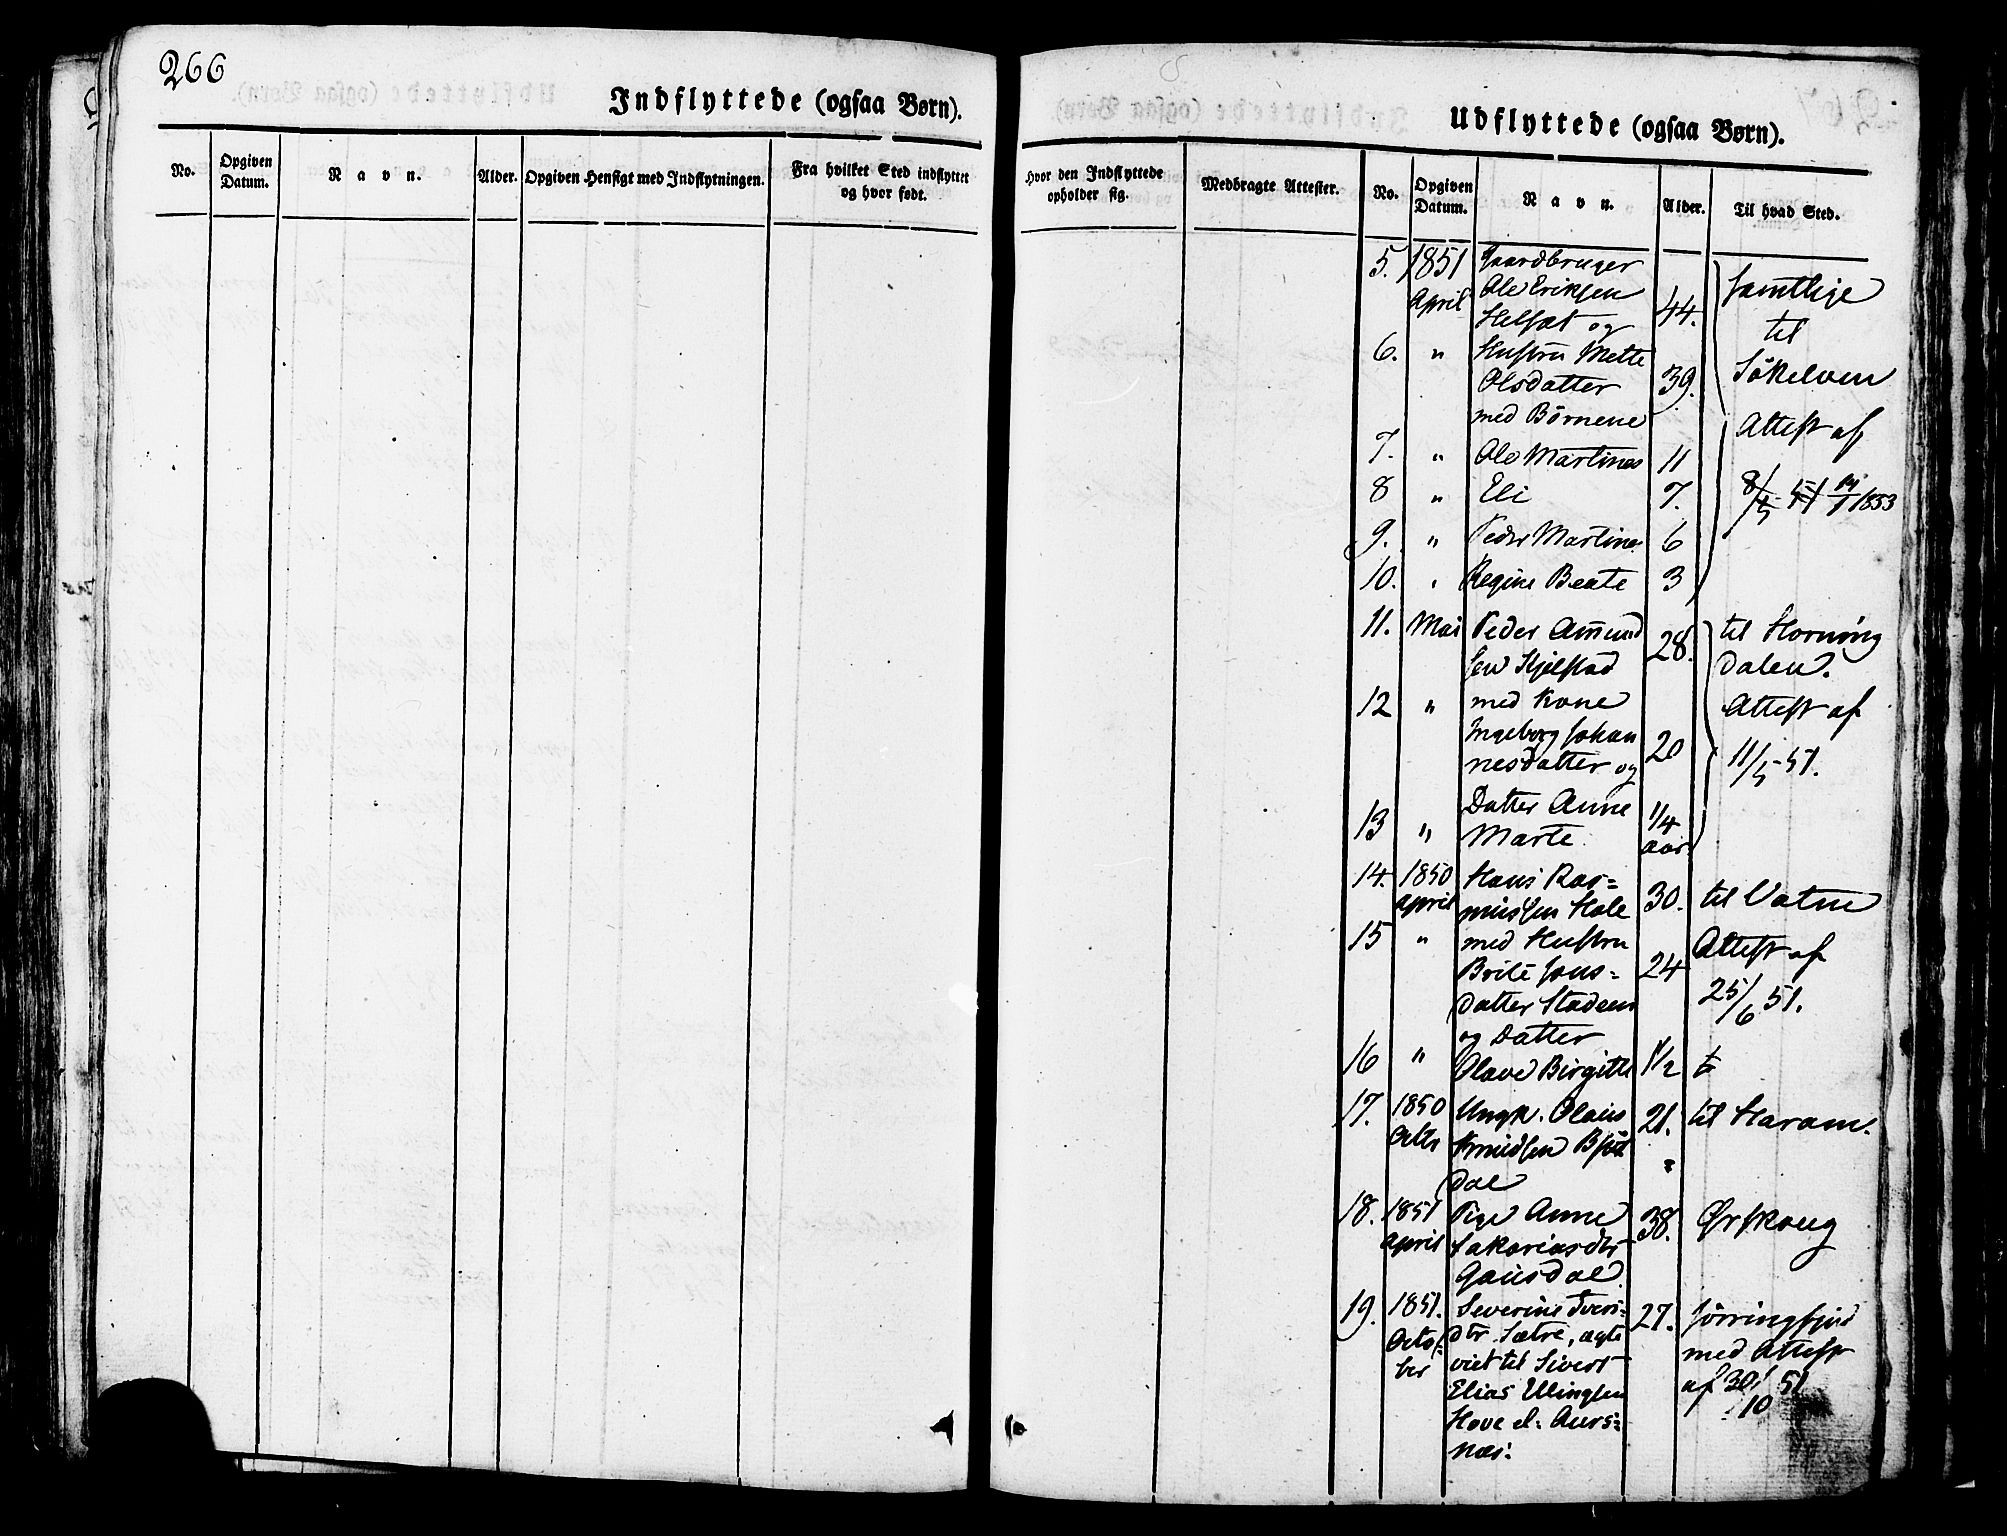 266
Indflyttede (ogsaa Børn).
No.
Opgiven Datum.
Navn.
Alder.
Opgiven Hensigt med Indflytningen.
Fra hvilket Sted indflyttet
og hvor født.
Hvor den Indflyttede
opholder sig.
Medbragte Attester.
Udflyttede (ogsaa Børn).
No.
Opgiven Datum.
Navn.
Alder.
Til hvad Sted.
5. 1851 Gaardbruger
April Ole Eriksen
Helsæt og 44. samtlige
til
6. " Hustru Mette
Olsdatter 39. Søkelven
med Børnene Attest af
7. " Ole Martinus 11
8 " Eli 7. 8/5 1853
9. " Peder Martinus 6
10. " Regine Beate 3
11. Mai Peder Amund
sen Kjelstad 28. til Horning
dalen.
12 " med Kone Attest af
Ingeborg Johan
nesdatter og 20 11/5 51.
13 " Datter Anne
Marte 1/4 aar
14. 1850 Hans Ras=
April mussen Hole 30. til Vatne
15 " med Hustru Attest af
Brite Jons= 24
datter Stadsnes 25/6 51.
og Datter
16 " Olave Birgitte 1 1/2
17. 1850 Ungk. Olaus 21. til Haram.
Octbr Knudsen
dal
18. 1851 Pige Anne 38. Ørskoug
April Sakariasdtr
Gausdal
19. 1851. Severine Ivers= 27. Jørringfjord
Octo= dtr. Sætre, ægte med Attest
ber viet til Sivert af 30/10 51
Elias Ellingsen
Hove el. Aurs=
næs.